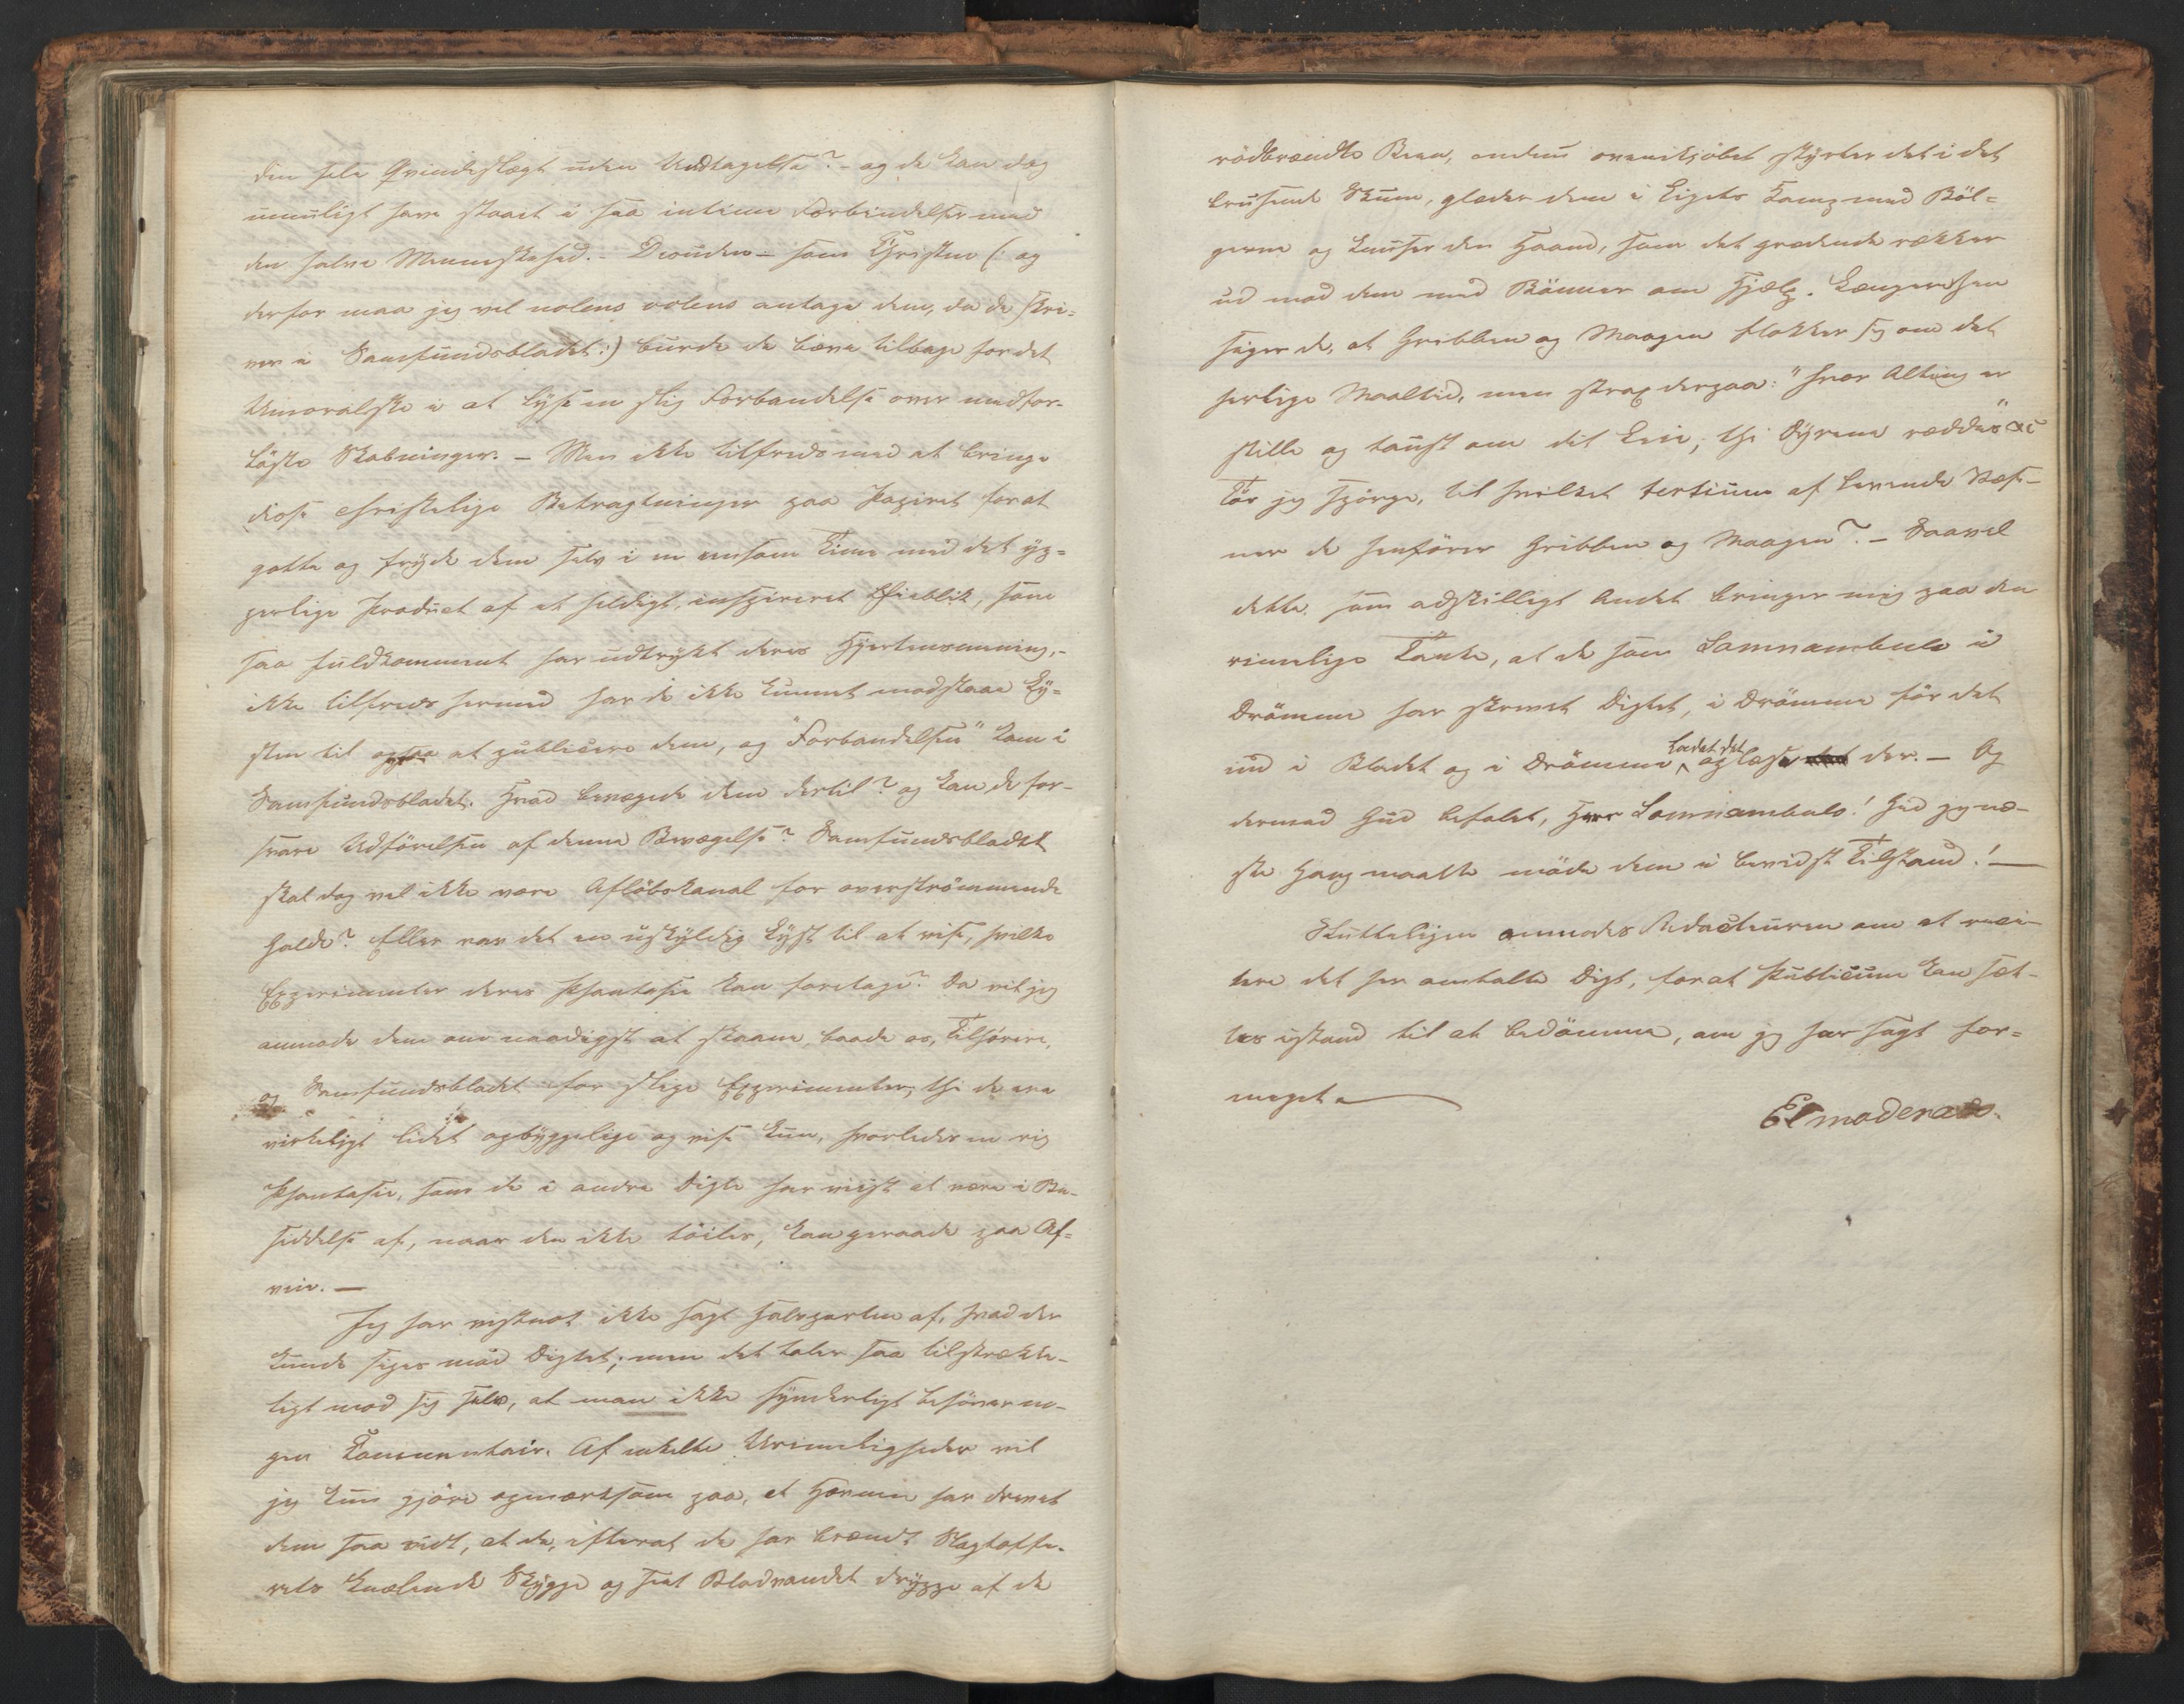 den hele Qvindeslægt uden Undtagelse? - og de kan dog
umuligt have staaet i saa intim Forbindelse med
den halve Menneskehed. - Desuden - som Christen (: og
derfor maa jeg vel nolens volens antage dem, da de skri-
ver i Samfundsbladet:) burde de bæve tilbage for det
Umoralske i at lyse en slig Forbandelse over medfor-
löste Skabninger. - Men ikke tilfreds med at bringe
disse christelige Betragtninger paa Papiret for at
gotte og fryde dem selv i en eensom Time med det yp-
perlige Product af et heldigt, inspireret Øieblik, som
saa fuldkomment har udtrykt deres Hjertensmening, -
ikke tilfreds hermed har de ikke kunnet modstaae Ly-
sten til ogsaa at publicere dem, og "Forbandelsen" kom i
Samfundsbladet. Hvad bevægede dem dertil? og kan de for-
svare Udförelsen af denne Bevægelse? Samfundsbladet
skal dog vel ikke være Aflöbskanal for overströmmende
Galde? Eller var det en uskyldig Lyst til at vise, hvilke
Experimenter deres Phantasie kan foretage? Da vil jeg
anmode dem om naadigst at skaane, baade os, Tilhörere,
og Samfundsbladet for slige Experimenter, thi de ere
virkeligt lidet opbyggelige og vise kun, hvorledes en rig
Phantasie, som de i andre Digte har viist at være i Be-
siddelse af, naar den ikke töiles, kan geraade paa Af-
veie. -
Jeg har vistnok ikke sagt Halvparten af, hvad der
kunde siges mod Digtet; men det taler saa tilstrække-
ligt mod sig selv, at man ikke synderligt behöver no-
gen Commentair. Af enkelte Urimeligheder vil
jeg kun gjöre opmærksom paa, at Hævnen har drevet
dem saa vidt, at de, efterat de har brændt Slagtoffe-
rets knælende Skygge og seet Blodvandet dryppe af de
rödbrændte Been, endnu ovenikjöbet styrter det i det
brusende Skum, glæder dem i Ligets Kamp med Böl-
gerne og knuser den Haand, som det grædende rækker
ud mod dem med Bönner om Hjælp. Længere hen
siger de, at Gribben og Maagen flokker sig om det
herlige Maaltid, men strax derpaa: "hvor Alting er
stille og taust om dit Leie; thi Dyrene ræddes" &c
Tör jeg spörge, til hvilket tertium af levende Væse-
ner de henförer Gribben og Maagen? - Saavel
dette, som adskilligt Andet bringer mig paa den
rimelige Tanke, at de som Somnambule i
Drömme har skrevet Digtet, i Drömme för det
ind i Bladet og i Drömme ladet det oplæse der. - Og
dermed Gud befalet, Herr Somnambule! Gid jeg næ-
ste Gang maatte möde dem i bevidst Tilstand! -
Sluttelig anmodes Redacteuren om at reci-
tere det her omtalte Digt, for at Publicum kan sæt-
tes istand til at bedömme, om jeg har sagt for-
meget
El moderado.